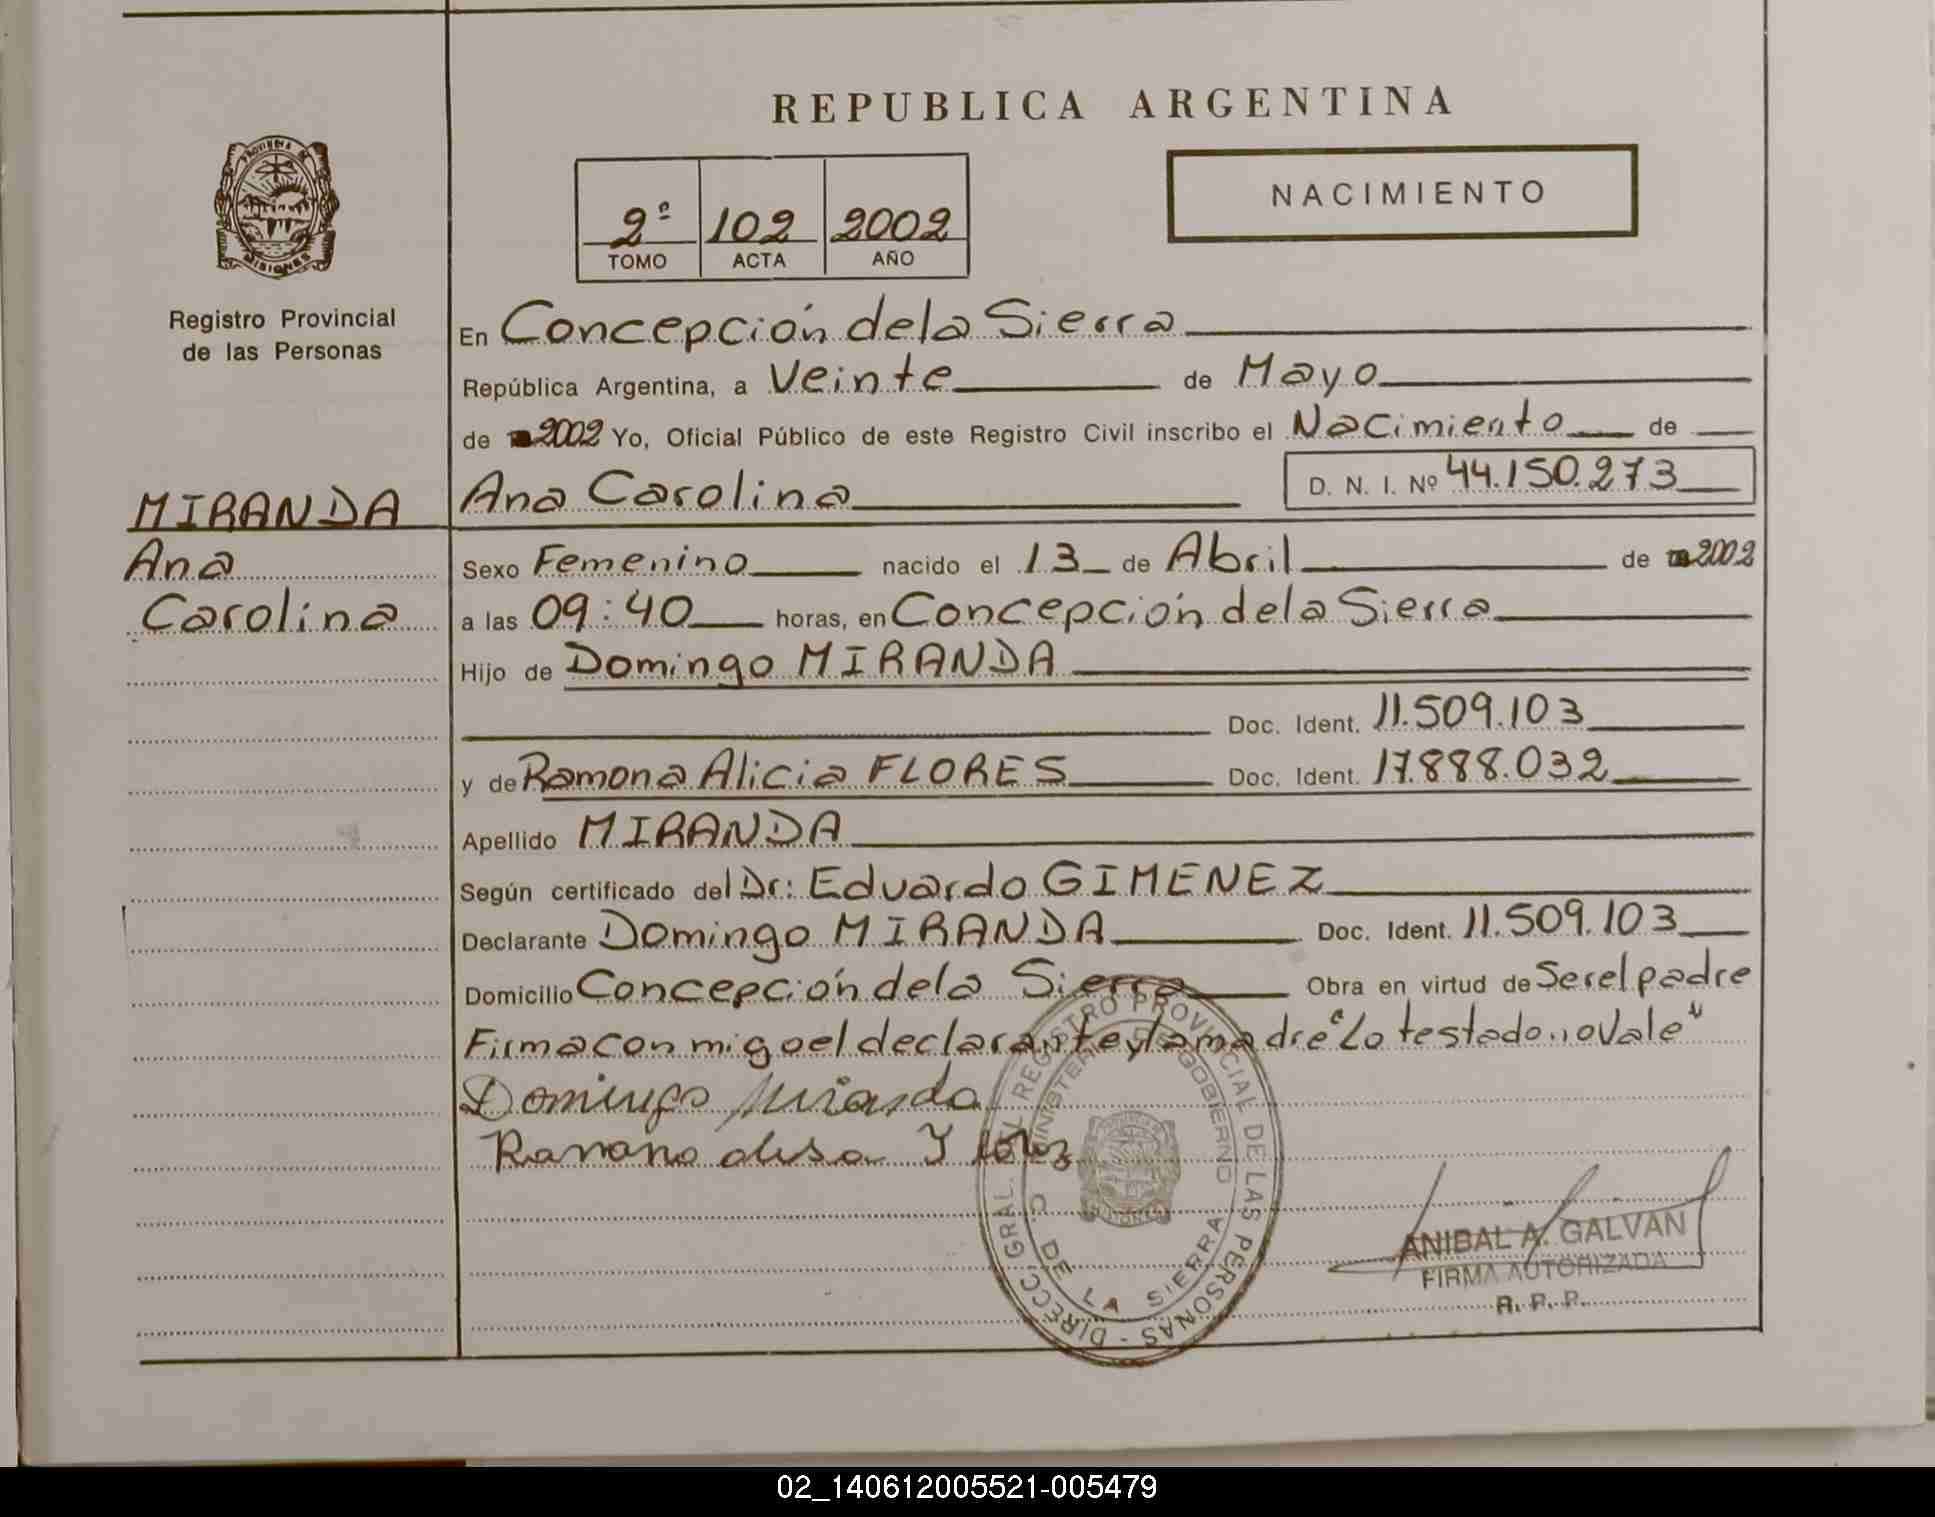 REPUBLICA ARGENTINA
PROVINCIA DE
MISIONES
Registro Provincial
de las Personas
NACIMIENTO
2º 102 2002
TOMO ACTA AÑO
En Concepción de la Sierra
República Argentina, a Veinte de Mayo
de 2002 Yo, Oficial Público de este Registro Civil inscribo el Nacimiento de
MIRANDA
Ana
Carolina
Ana Carolina D. N. I. Nº 44.150.273
Sexo Femenino nacido el 13 de Abril de 2002
a las 09:40 horas, en Concepción de la Sierra
Hijo de Domingo MIRANDA
Doc. Ident. 11.509.103
y de Ramona Alicia FLORES Doc. Ident. 17.888.032
Apellido MIRANDA
Según certificado del Dr: Eduardo GIMENEZ
Declarante Domingo MIRANDA Doc. Ident. 11.509.103
Domicilio Concepción de la Sierra Obra en virtud de Ser el padre
Firma con migo el declarante y la madre "Lo testado no Vale"
Domingo Miranda
DIRECC. GRAL. DEL REGISTRO PROVINCIAL DE LAS PERSONAS -
MINISTERIO DE GOBIERNO
C. DE LA SIERRA
ANIBAL A. GALVAN
FIRMA AUTORIZADA
R. P. P.
02_140612005521-005479